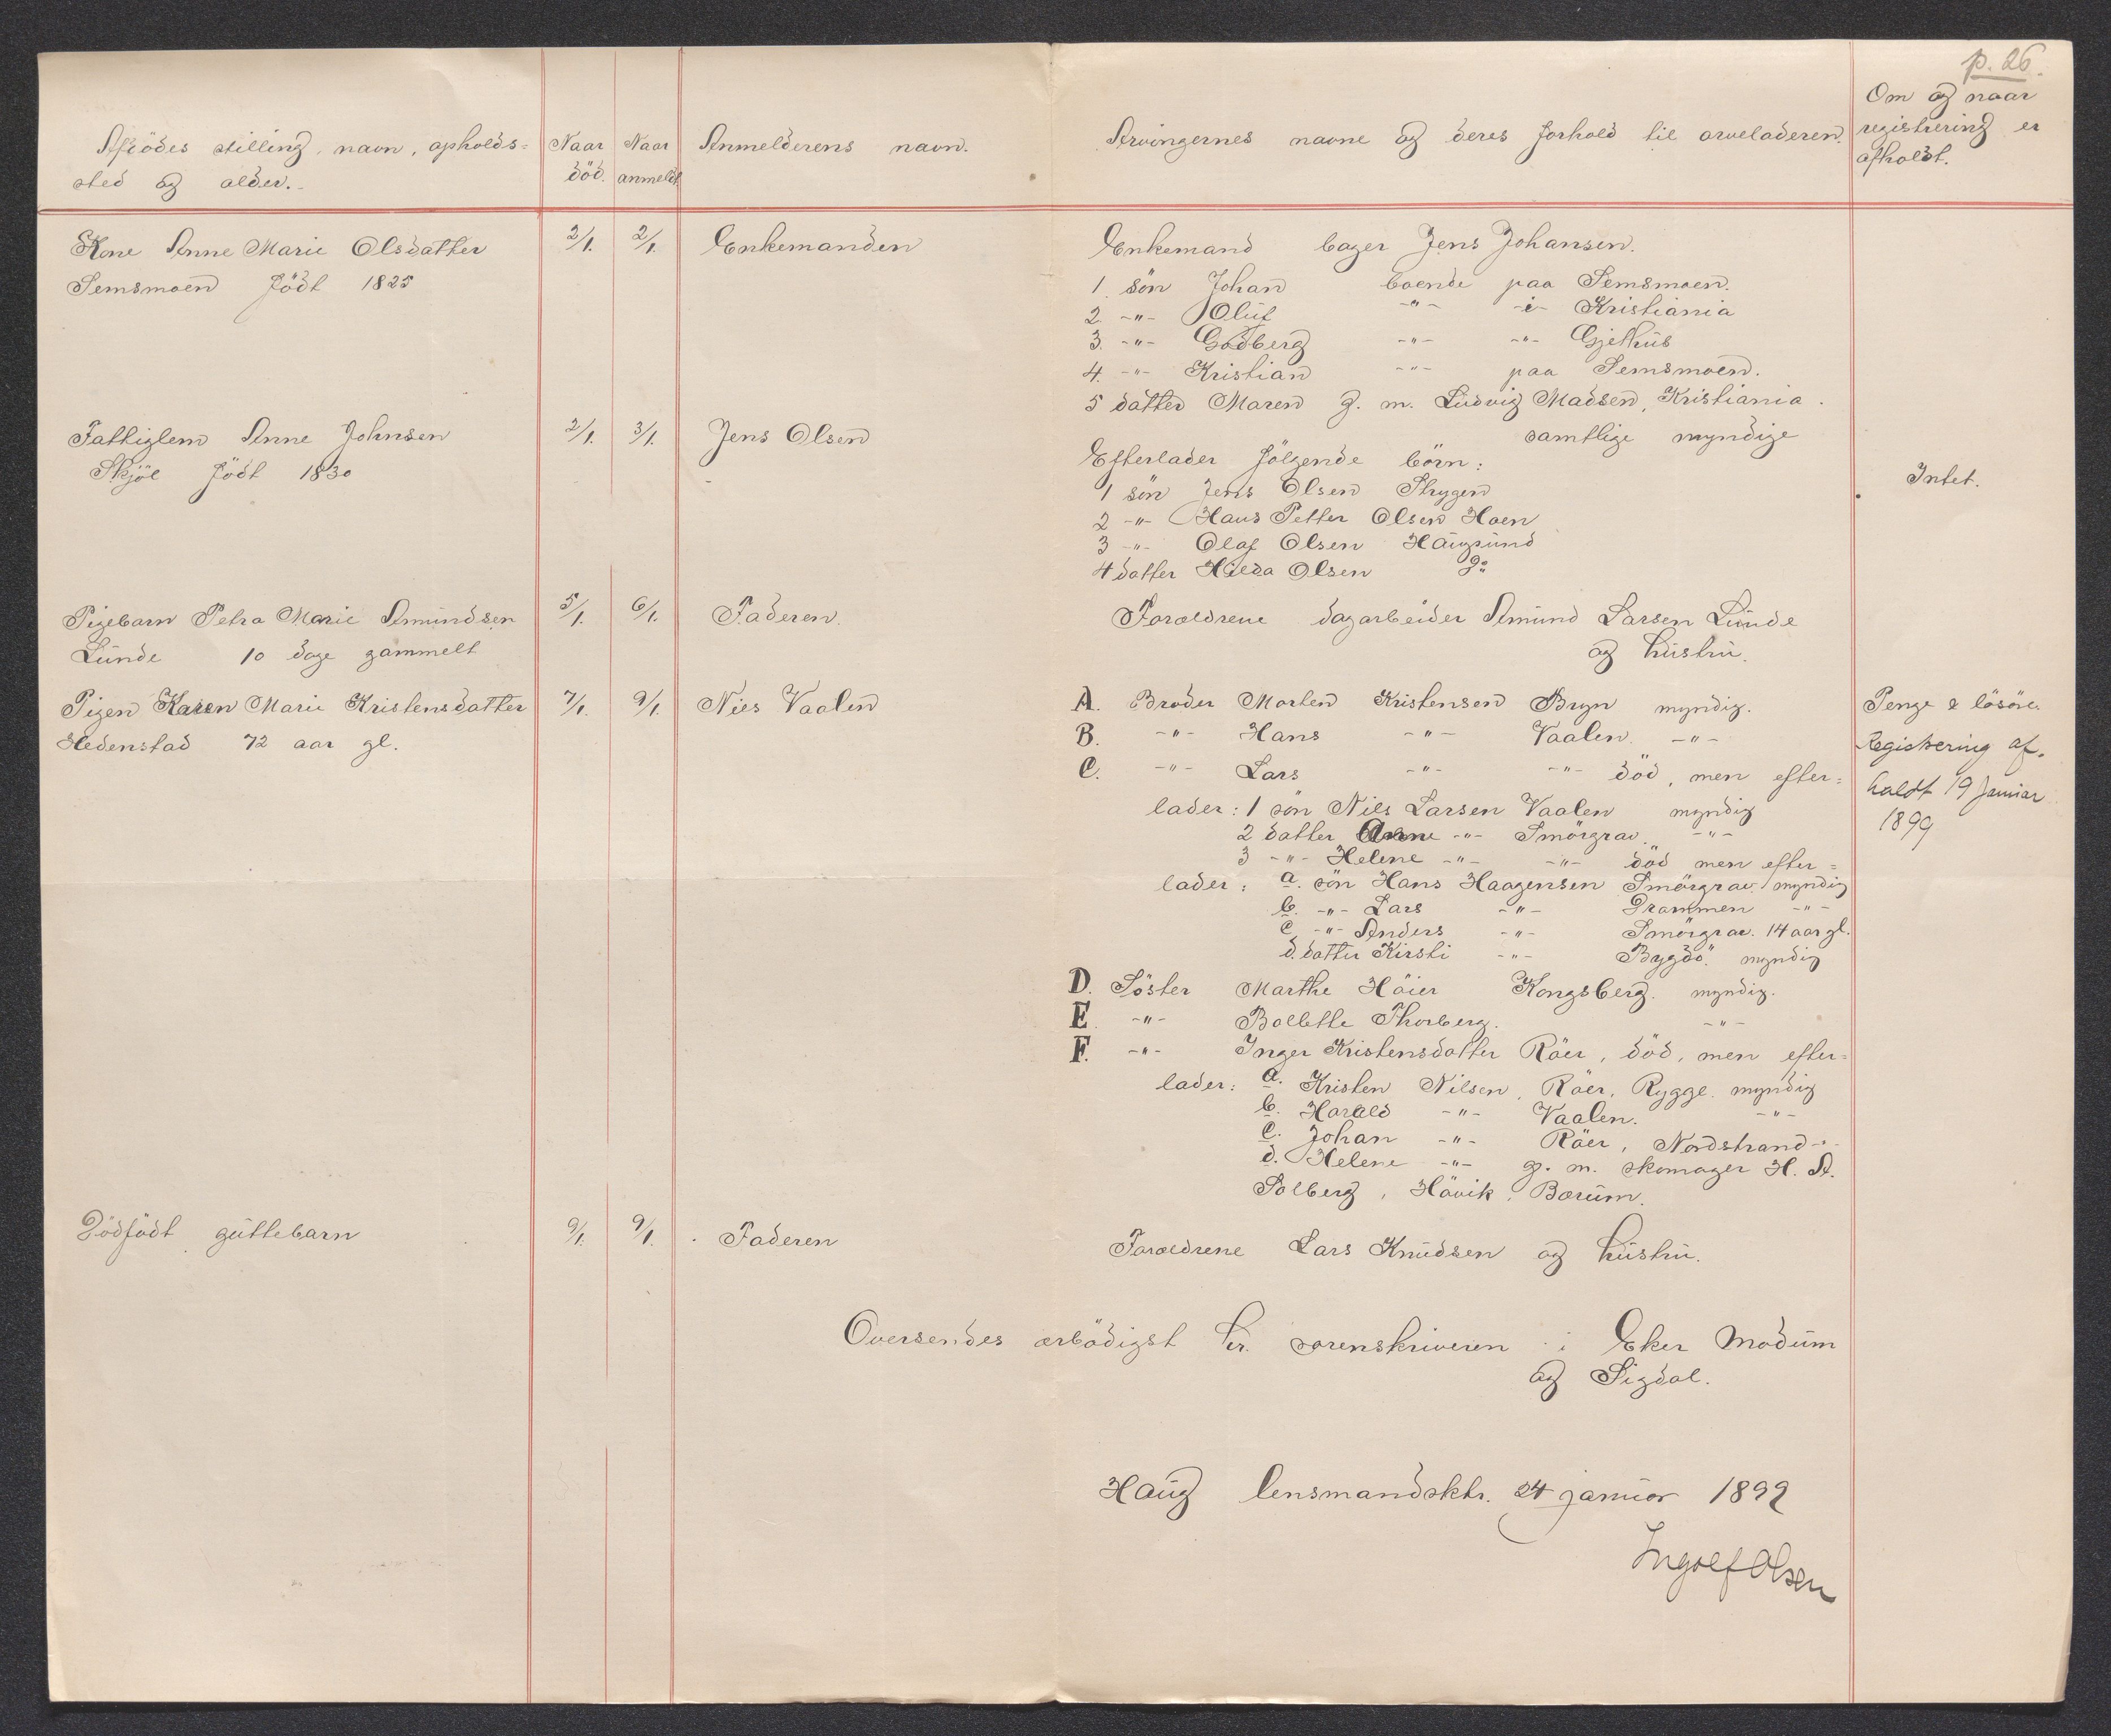 p. 26.
Afdödes stilling, navn, opholds=
sted og alder.
Naar
död.
Naar
anmeldt
Anmelderens navn.
Arvingernes navne og deres forhold til arveladeren.
Om og naar
registrering er
afholdt.
Kone Anne Marie Olsdatter
Semsmoen födt 1825
2/1. 2/1.
Enkemanden
Enkemand bager Jens Johansen.
1. sön Johan boende paa Semsmoen.
2. -"- Oluf -"- -i- Kristiania
3. -"- Godberg -"- -"- Gjethus
4. -"- Kristian -"- paa Semsmoen.
5 datter Maren g. m. Ludvig Madsen, Kristiania.
samtlige myndige
Fattiglem Anne Johnsen
Skjöl födt 1830
2/1. 3/1.
Jens Olsen
Efterlader fölgende börn:
1 sön Jens Olsen Strygen
2 -"- Hans Petter Olsen Hoen
3 -"- Olaf Olsen Haugsund
4 datter Hilda Olsen Do
Intet.
Pigebarn Petra Marie Amundsen
Lunde 10 dage gammelt
5/1. 6/1.
Faderen.
Forældrene dagarbeider Amund Larsen Lunde
og hustru.
Pigen Karen Marie Kristensdatter
Hedenstad 72 aar gl.
7/1. 9/1.
Nils Vaalen
A. Broder Morten Kristensen Bryn myndig.
B. -"- Hans -"- Vaalen. -"-
C. -"- Lars -"- -"- död, men efter=
lader: 1 sön Nils Larsen Vaalen myndig
2 datter Anne -"- Smörgrav. -"-
3 -"- Helene -"- -"- död men efter=
lader: a. sön Hans Haagensen Smörgrav. myndig
b. -"- Lars -"- Drammen -"-
c. -"- Anders -"- Smörgrav. 14 aar gl.
d. datter Kirsti -"- Bygdö. myndig
D. Söster Marthe Höier Kongsberg. myndig.
E. -"- Bollette Thorberg. -"-
F. -"- Inger Kristensdatter Röer, död, men efter=
lader: a. Kristen Nilsen, Röer, Rygge. myndig
b. Harald -"- Vaalen. -"-
c. Johan -"- Röer, Nordstrand -"-
d. Helene -"- g. m. skomager H. A.
Solberg, Hövik, Bærum.
Penge & lösöre.
Registrering af-
holdt 19 januar
1899
Dödfödt guttebarn
9/1. 9/1.
Faderen
Forældrene Lars Knudsen og hustru.
Oversendes ærbödigst hr. sorenskriveren i Eker Modum
og Sigdal.
Haug lensmandsktr. 24 januar 1899
Ingolf Olsen